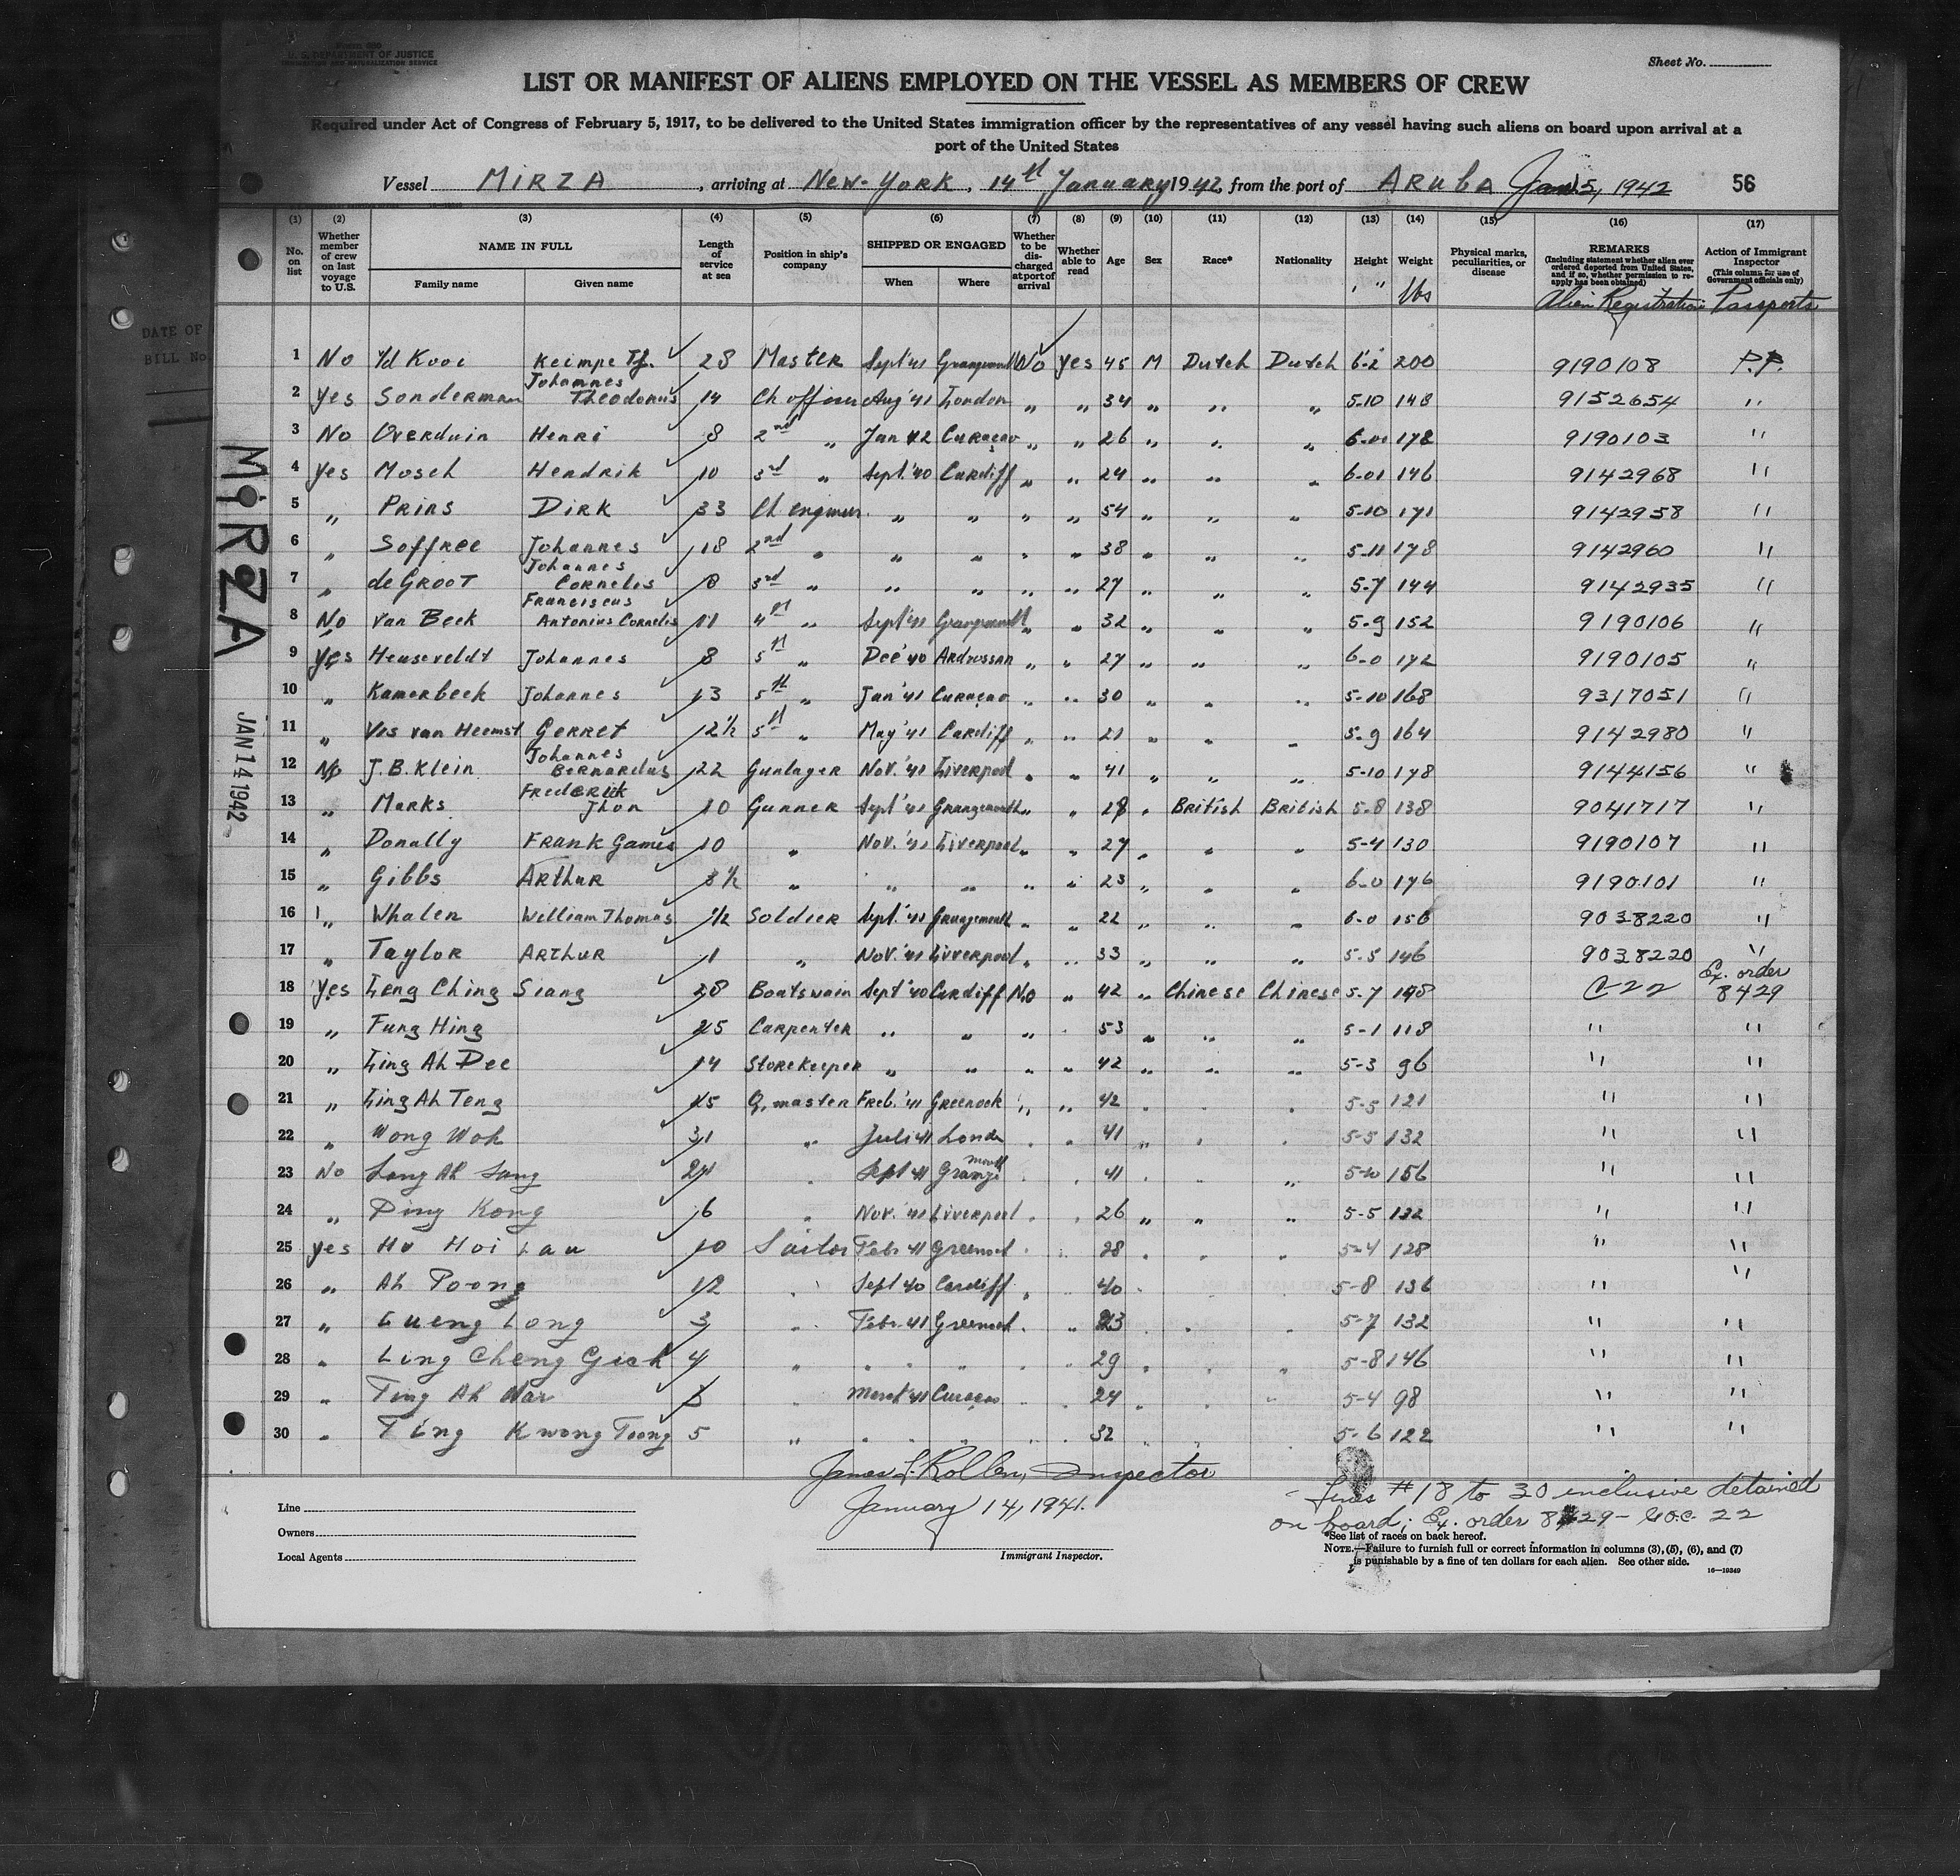 Form 680
U. S. DEPARTMENT OF JUSTICE
IMMIGRATION AND NATURALIZATION SERVICE
Sheet No.
LIST OR MANIFEST OF ALIENS EMPLOYED ON THE VESSEL AS MEMBERS OF CREW
Required under Act of Congress of February 5, 1917, to be delivered to the United States immigration officer by the representatives of any vessel having such aliens on board upon arrival at a
port of the United States
Vessel MIRZA, arriving at New-York, 14th January 1942, from the port of Aruba Jan 5, 1942 56
(1) No. on list
(2) Whether member of crew on last voyage to U.S.
(3) NAME IN FULL Family name Given name
(4) Length of service at sea
(5) Position in ship's company
(6) SHIPPED OR ENGAGED When Where
(7) Whether to be discharged at port of arrival
(8) Whether able to read
(9) Age
(10) Sex
(11) Race*
(12) Nationality
(13) Height ' "
(14) Weight lbs
(15) Physical marks, peculiarities, or disease
(16) REMARKS (Including statement whether alien ever ordered deported from United States, and if so, whether permission to reapply has been obtained) Alien Registration
(17) Action of Immigrant Inspector (This column for use of Government officials only) Passports
1 No Kooi Keimpe Tj. 28 Master Sept '41 Grangemouth No yes 45 M Dutch Dutch 6-2 200 9190108 P.P.
2 Yes Sonderman Johannes Theodorus 14 Ch officer Aug '41 London " " 34 " " " 5-10 148 9152654 "
3 No Overduin Henri 8 2nd " Jan 42 Curaçao " " 26 " " " 6-01 178 9190103 "
4 Yes Mosch Hendrik 10 3rd " Sept '40 Cardiff " " 24 " " " 6-01 146 9142968 "
5 " Prins Dirk 33 Ch engineer " " " " 54 " " " 5-10 171 9142958 "
6 " Soffree Johannes 18 2nd " " " " " 38 " " " 5-11 178 9142960 "
7 " de Groot Johannes Cornelis 8 3rd " " " " " 27 " " " 5-7 144 9142935 "
8 No van Beek Franciscus Antonius Cornelis 11 4th " Sept '41 Grangemouth " " 32 " " " 5-9 152 9190106 "
9 Yes Heuseveldt Johannes 8 5th " Dec '40 Ardrossan " " 27 " " " 6-0 172 9190105 "
10 " Kamerbeek Johannes 13 5th " Jan '41 Curaçao " " 30 " " " 5-10 168 9317051 "
11 " Vis van Heemst Gerret 12½ 5th " May '41 Cardiff " " 21 " " " 5-9 164 9142980 "
12 No J.B. Klein Johannes Bernardus 22 Gunlayer Nov. '41 Liverpool " " 41 " " " 5-10 178 9144156 "
13 " Marks Frederick Jhon 10 Gunner Sept '41 Grangemouth " " 28 " British British 5-8 138 9041717 "
14 " Donally Frank Games 10 " Nov. '41 Liverpool " " 27 " " " 5-4 130 9190107 "
15 " Gibbs Arthur 8½ " " " " " 23 " " " 6-0 176 9190101 "
16 " Whalen William Thomas ½ Soldier Sept. '41 Grangemouth " " 22 " " " 6-0 156 9038220 "
17 " Taylor Arthur 1 " Nov. '41 Liverpool " " 33 " " " 5-5 146 9038220 "
18 Yes Leng Ching Siang 28 Boatswain Sept '40 Cardiff No " 42 " Chinese Chinese 5-7 148 C 22 Ex. order 8429
19 " Fung Hing 25 Carpenter " " " " 53 " " " 5-1 118 " "
20 " Ling Ah Dee 14 Storekeeper " " " " 42 " " " 5-3 96 " "
21 " Ling Ah Teng 25 Q. master Freb. '41 Greenock " " 42 " " " 5-5 121 " "
22 " Wong Woh 31 " Juli 41 London " " 41 " " " 5-5 132 " "
23 No Sang Ah Sang 24 " Sept 41 Grangemouth " " 41 " " " 5-10 156 " "
24 " Ding Kong 6 " Nov. '41 Liverpool " " 26 " " " 5-5 132 " "
25 yes Hu Hoi Lau 10 Sailor Febr 41 Greenock " " 28 " " " 5-4 128 " "
26 " Ah Poong 12 " Sept 40 Cardiff " " 40 " " " 5-8 136 " "
27 " Lueng Long 3 " Febr. 41 Greenock " " 23 " " " 5-7 132 " "
28 " Ling Cheng Giok 4 " " " " " 29 " " " 5-8 146 " "
29 " Ting Ah 3 " Maret 41 Curaçao " " 24 " " " 5-4 98 " "
30 " Ting Kwong Toong 5 " " " " " 32 " " " 5-6 122 " "
MIRZA
JAN 14 1942
DATE OF
BILL No
James F. Rollen, Inspector
January 14, 1941.
Immigrant Inspector.
Line
Owners
Local Agents
Lines #18 to 30 inclusive detained
on board; Ex. order 8429- G.O.C. 22
*See list of races on back hereof.
NOTE.—Failure to furnish full or correct information in columns (3), (5), (6), and (7)
is punishable by a fine of ten dollars for each alien. See other side.
16—19349